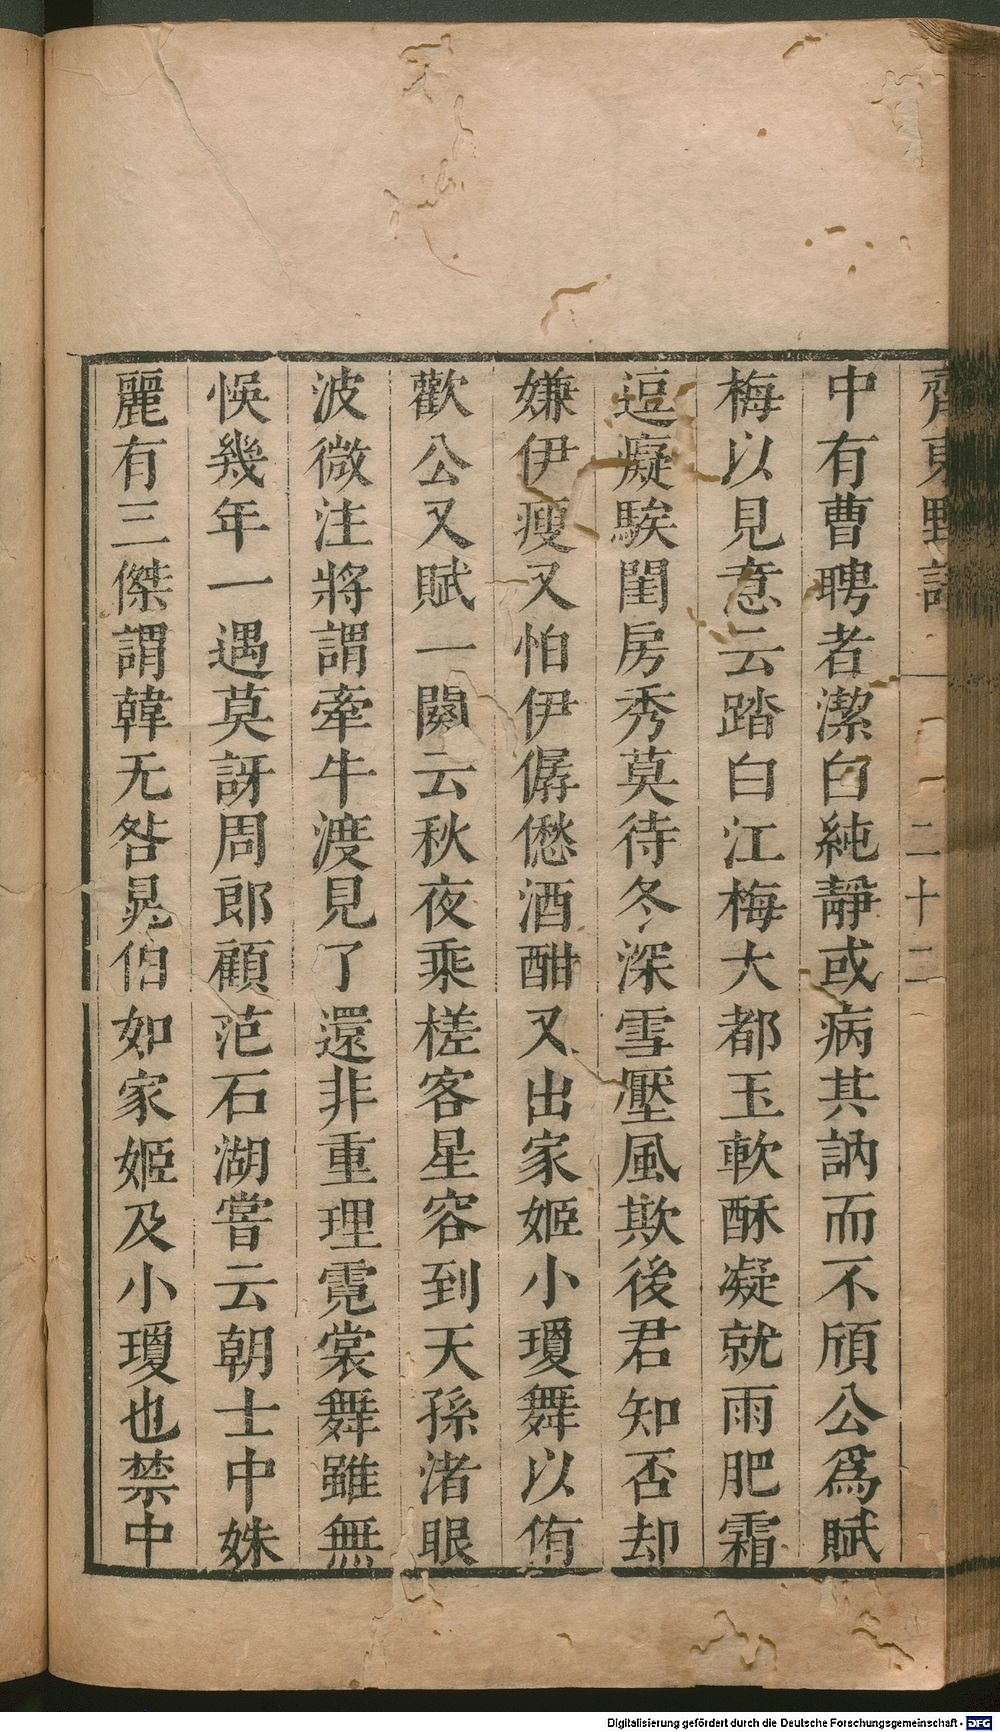 齊東野語 二十二
中有曹聘者潔白純靜或病其訥而不頎公爲賦
梅以見意云踏白江梅大都玉軟酥凝就雨肥霜
逗癡騃閨房秀莫待冬深雪壓風欺後君知否却
嫌伊瘦又怕伊僝僽酒酣又出家姬小瓊舞以侑
歡公又賦一闋云秋夜乘槎客星容到天孫渚眼
波微注將謂牽牛渡見了還非重理霓裳舞雖無
悞幾年一遇莫訝周郎顧范石湖嘗云朝士中姝
麗有三傑謂韓无咎晁伯如家姬及小瓊也禁中
Digitalisierung gefördert durch die Deutsche Forschungsgemeinschaft - DFG